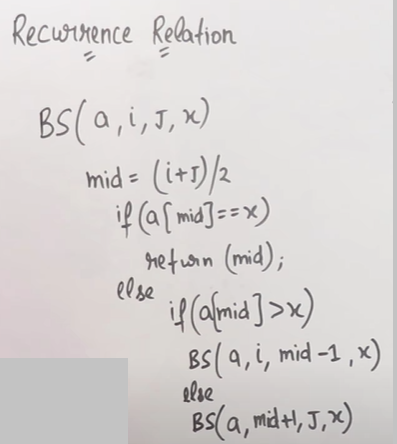 Recurrence Relation
BS(a,i,J,x)
mid = (i+J)/2
if(a[mid]==x)
return (mid);
else
if(a[mid]>x)
BS(a,i,mid-1,x)
else
BS(a,mid+1,J,x)